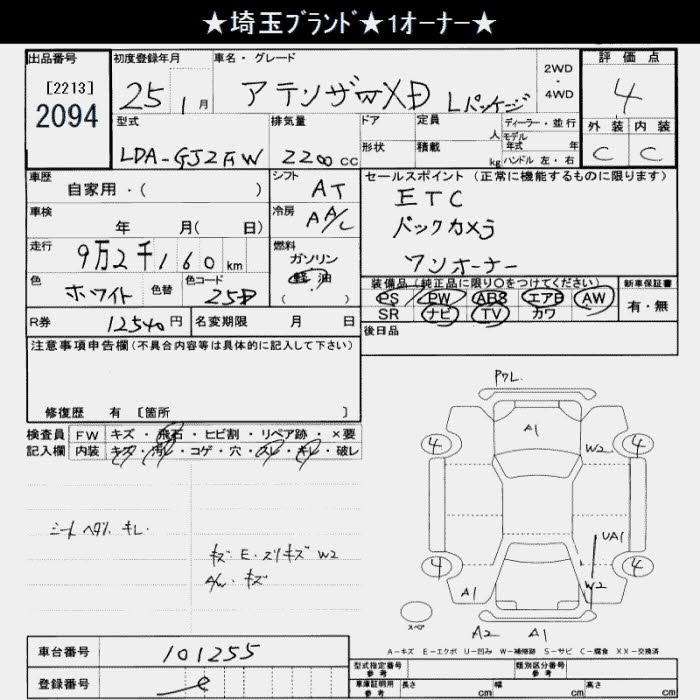 ★埼玉ﾌﾞﾗﾝﾄﾞ★1ｵｰﾅｰ★
出品番号 初度登録年月 車名・グレード 2WD・4WD 評価点
[2213]
2094
25 1月 アテンザW XD Lパッケージ 4
型式 排気量 ドア 定員 人 ディーラー・並行 外装 内装
モデル年式 年
LDA-GJ2FW 2200cc 形状 積載 kg ハンドル 左・右 C C
車歴 自家用・( ) シフト AT セールスポイント (正常に機能するものに限ります)
ETC
車検 年 月( 日) 冷房 AA/L バックカメラ
走行 9万2千160km 燃料 ガソリン 軽油 ( ) ワンオーナー
色 ホワイト 色替 色コード 25D
装備品(純正品に限り○をつけてください) 新車保証書
PS PW ABS エアB AW 有・無
SR ナビ TV カワ
R券 12540円 名変期限 月 日 後日品
注意事項申告欄(不具合内容等は具体的に記入して下さい)
修復歴 有 [箇所 ]
検査員記入欄 FW キズ・飛石・ヒビ割・リペア跡・×要
内装 キズ・汚レ・コゲ・穴・スレ・キレ・破レ
シートヘタリ キレ.
キズ E・スリキズ W2
A/W・キズ
P7L.
A1
W2
4 4
UA1
4 4
A1 W2
スペア
A2 A1
A-キズ E-エクボ U-凹み W-補修跡 S-サビ C-腐食 XX-交換済
車台番号 101255
型式指定番号 参考 類別区分番号 参考
登録番号
車庫証明用 参考 長さ cm 幅 cm 高さ cm